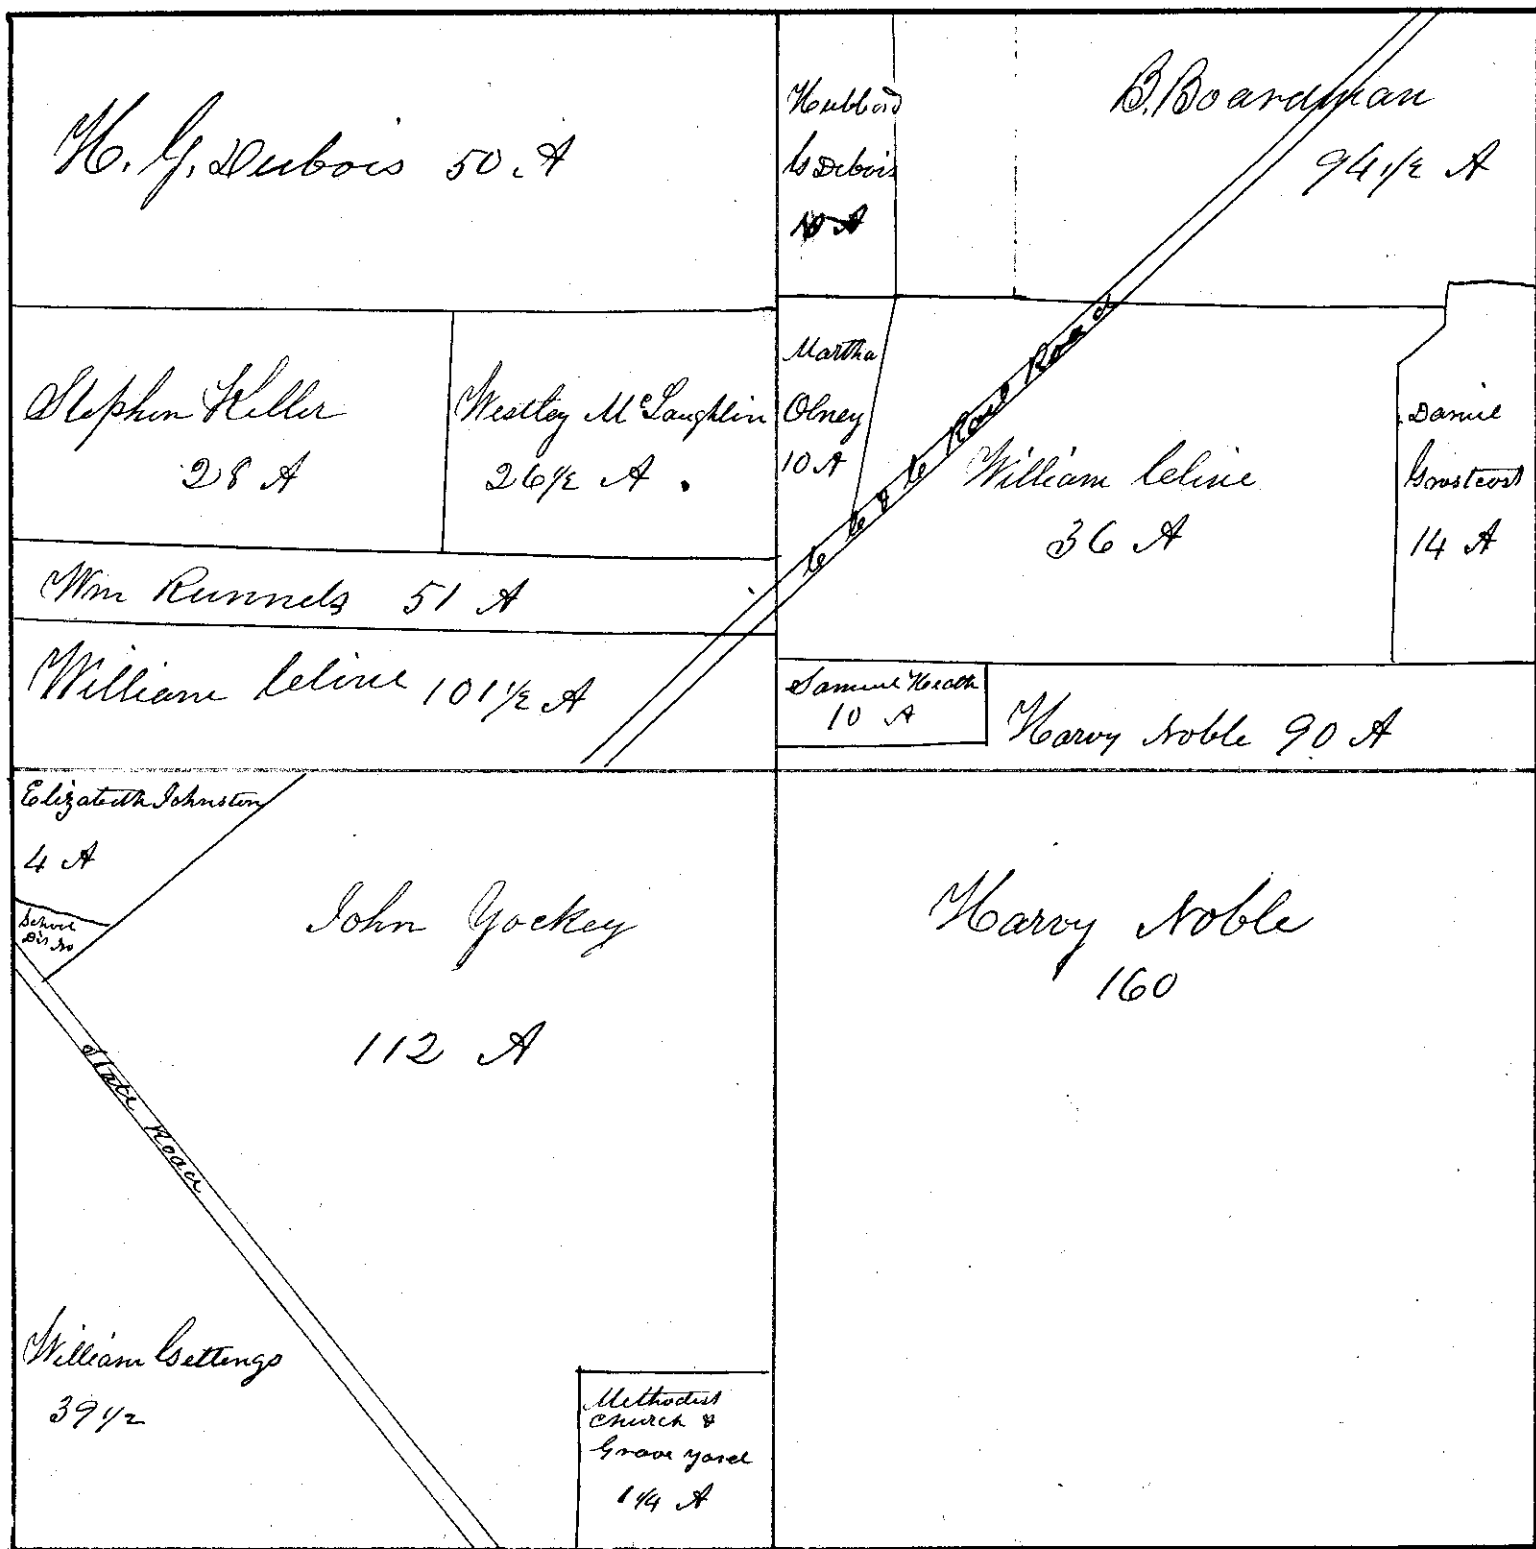 H. G. Dubois 50. A
Hubbard
G Debois
10 A
B. Boardman
94 1/2 A
Stephen Keller
28 A
Westley McLaughlin
26 1/2 A.
Martha
Olney
10 A
C C & C Rail Road
William Cline
36 A
Daniel
14 A
Wm Runnels 51 A
William Cline 101 1/2 A
Samuel Heath
10 A
Harvy Noble 90 A
Elizabeth Johnston
4 A
School
Dis No
John Yockey
112 A
Harvy Noble
160
State Road
William Gettings
39 1/2
Methodist
Church &
Grave yard
1 1/4 A